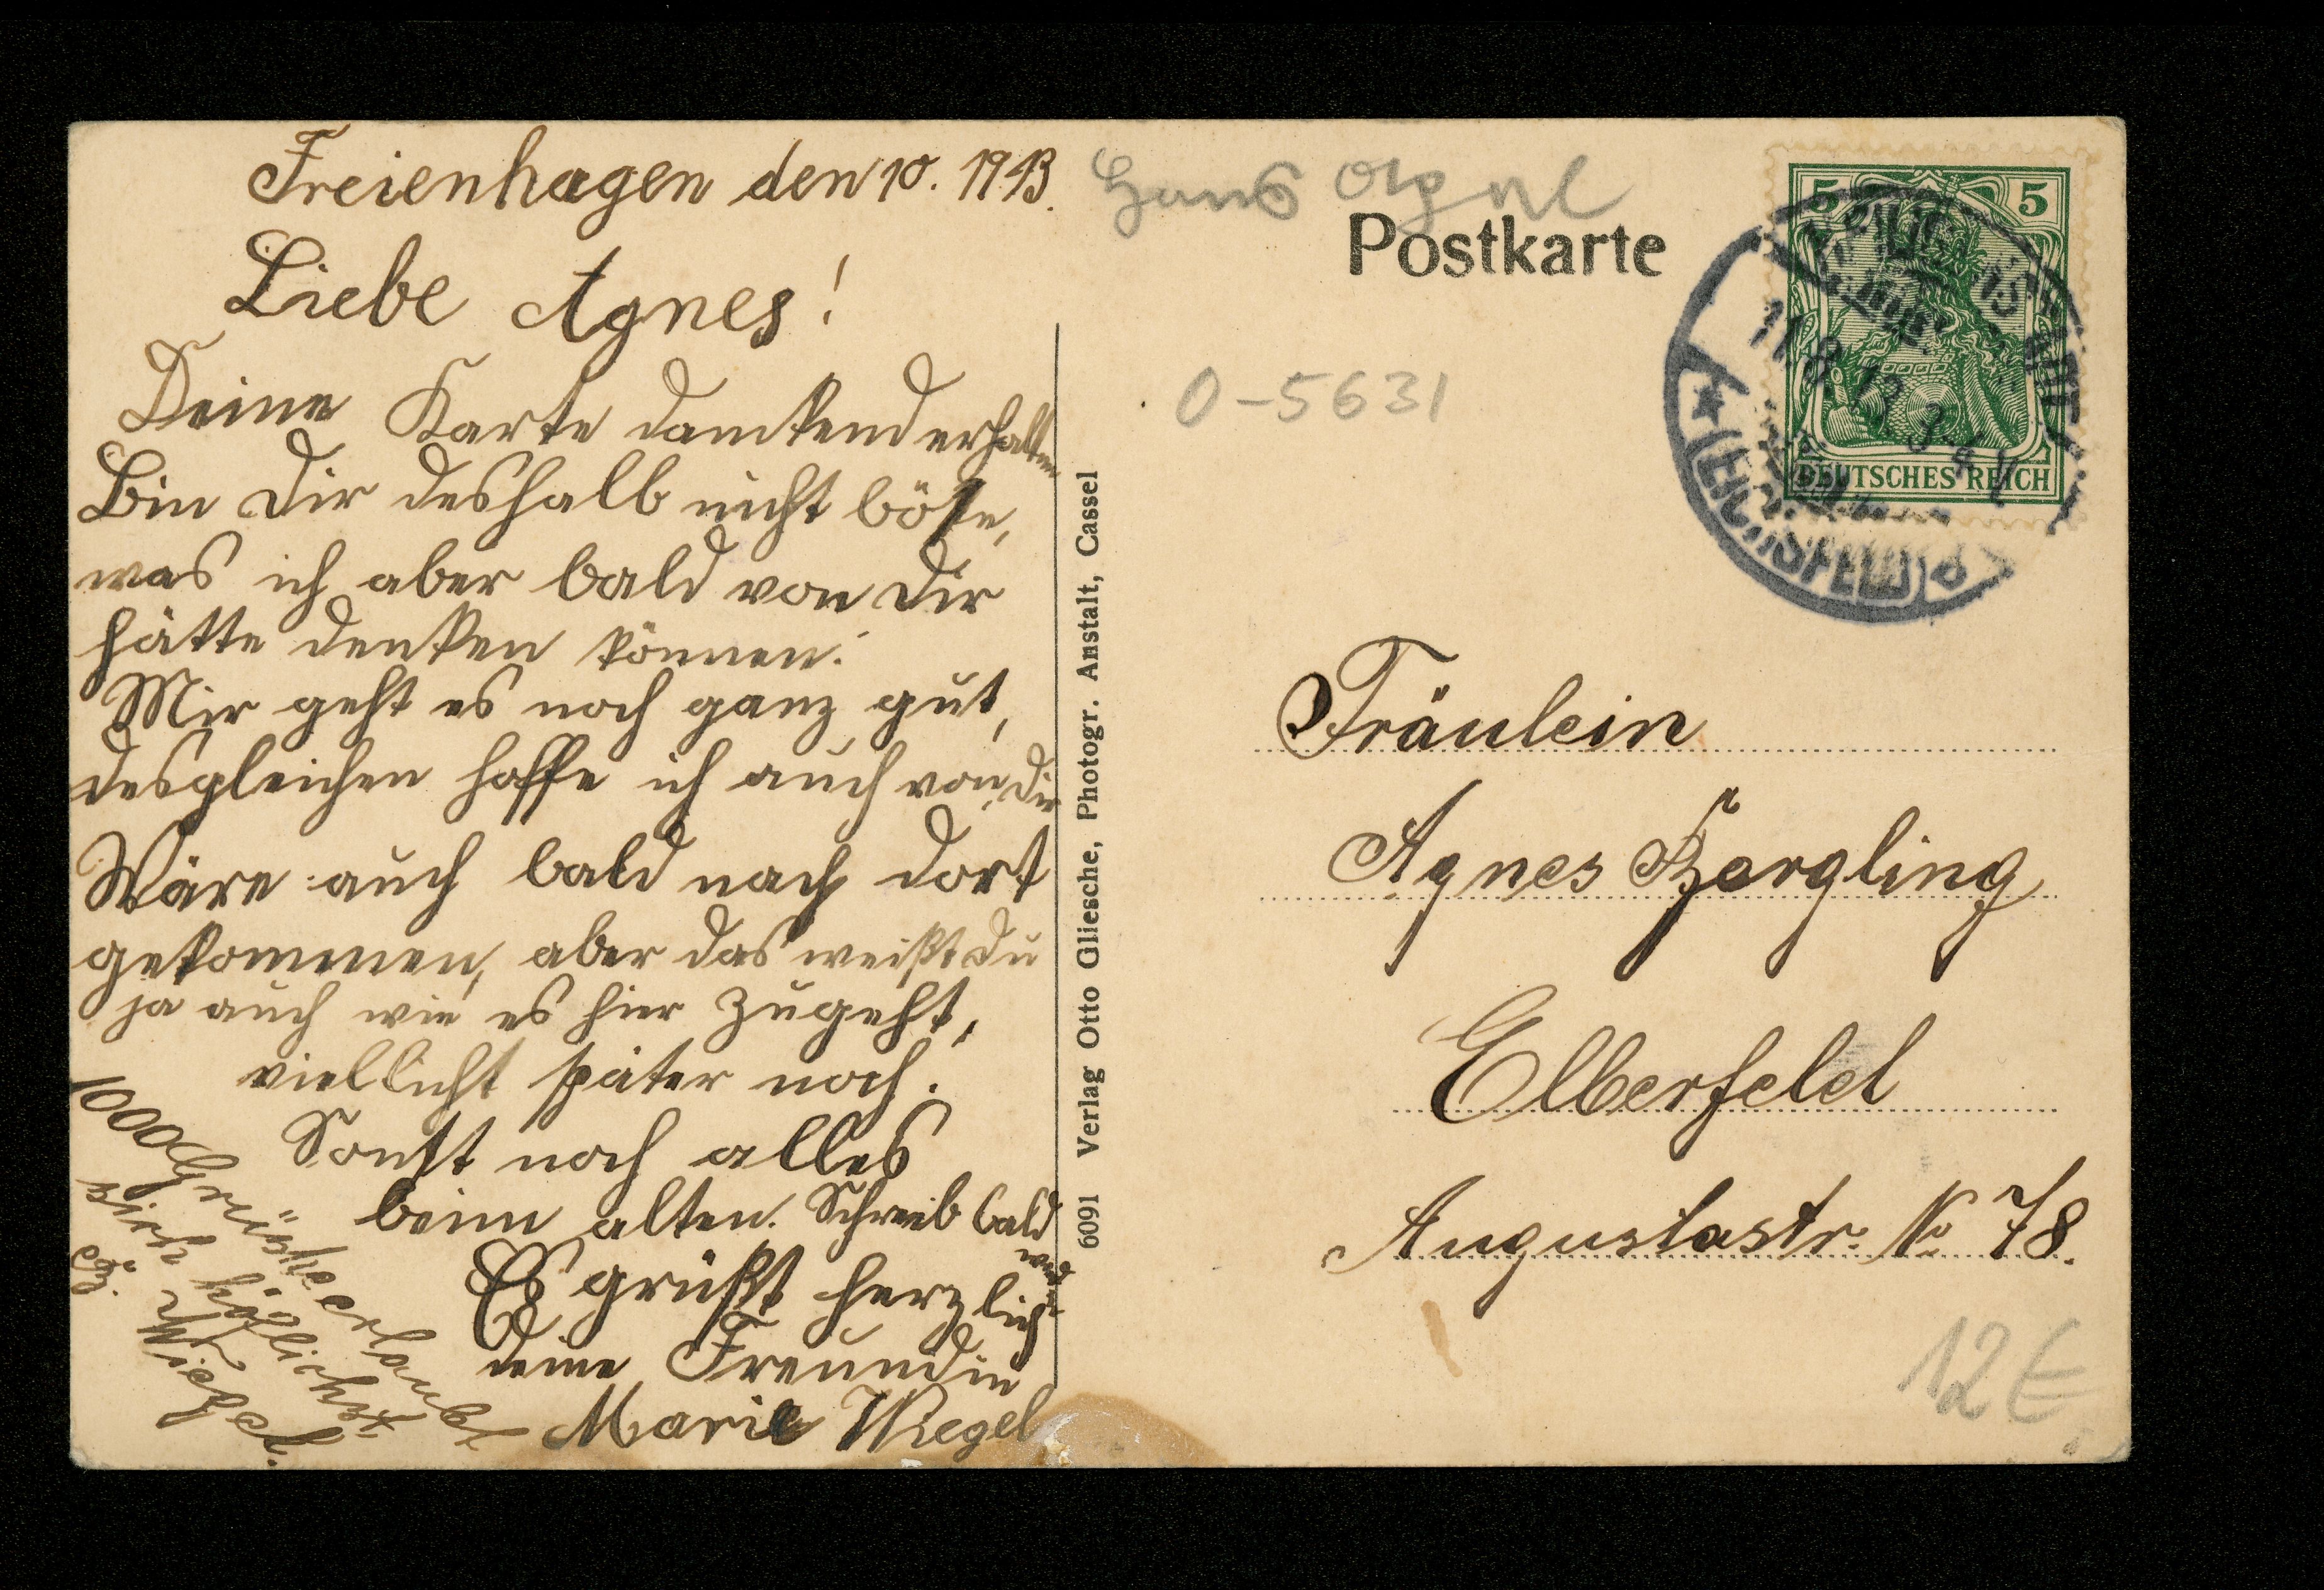 Freienhagen den 10. 1913.
Liebe Agnes!
Deine Karte dankend erhalten
Bin Dir deshalb nicht böse,
was ich aber bald von Dir
hätte denken können.
Mir geht es noch ganz gut,
desgleichen hoffe ich auch von Dir
Wäre auch bald nach dort
gekommen, aber das weißt du
ja auch wie es hier zugeht,
viellicht später noch.
Sonst noch alles
beim alten. Schreib bald
wieder
Es grüßt herzlich
deine Freundin
Marie Wiegel
1000 Grüsse erlaubt
sich höflichst
Wiegel.
6091 Verlag Otto Gliesche, Photogr. Anstalt, Cassel
Hans
Postkarte
0-5631
5 5
DEUTSCHES REICH
HEILIGENSTADT
11.8.13. 3-4 V
(EICHSFELD)
Fräulein
Agnes
Elberfeld
Augustastr. No 78.
12 €